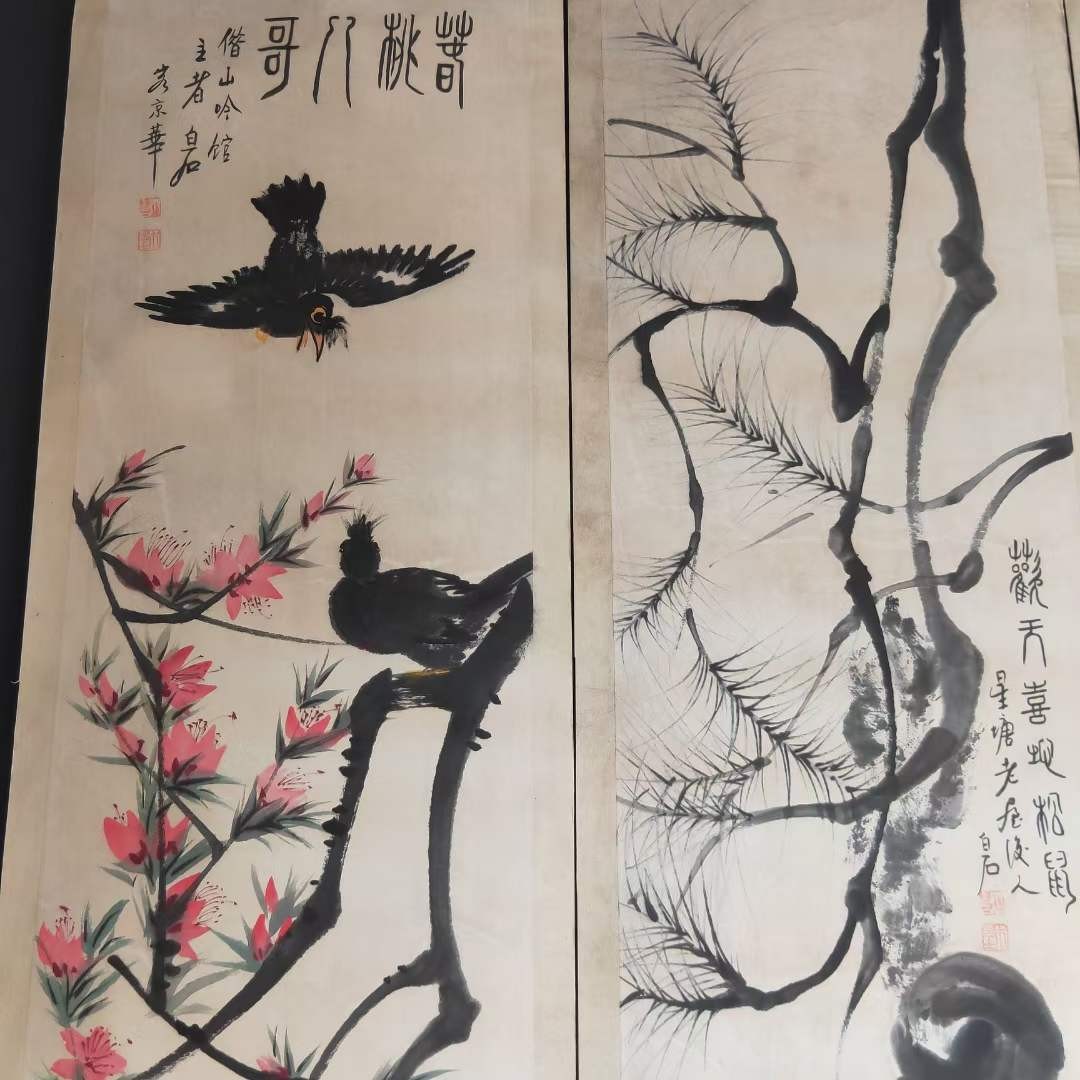 萅桃八哥
借山吟館
主者白石
客京華
歡天喜地松鼠
星塘老屋後人
白石